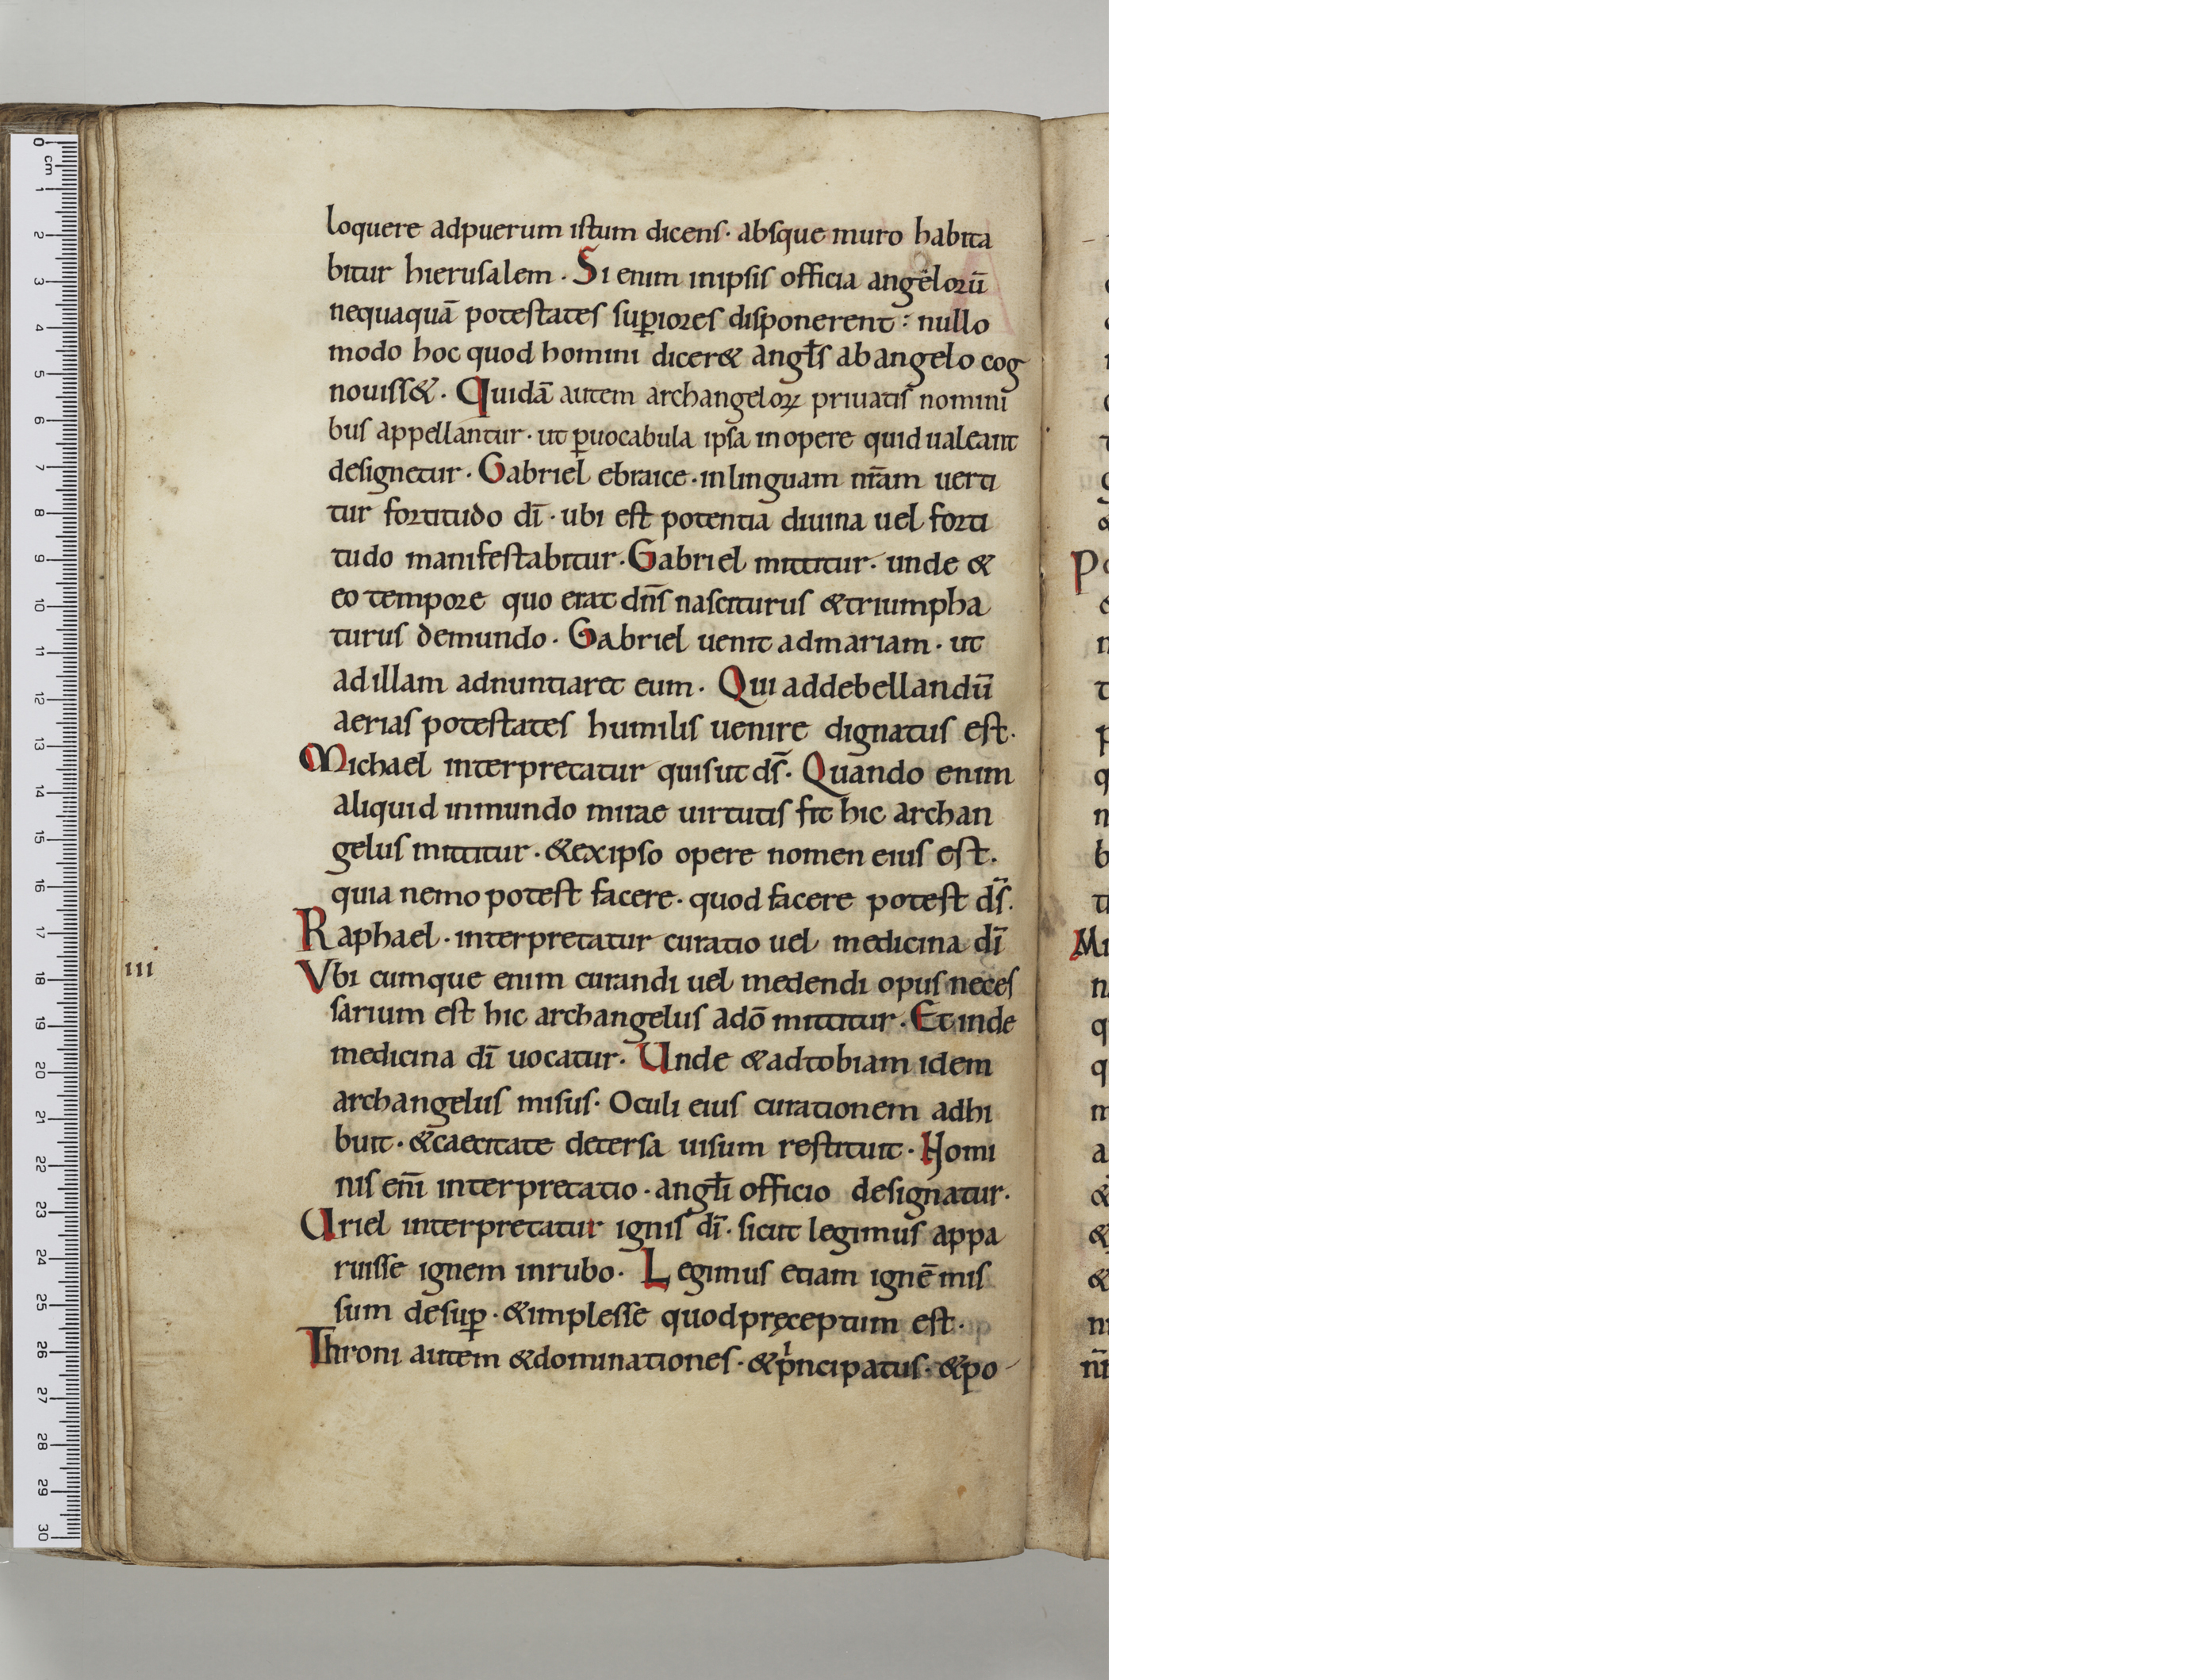 loquere adpuerum istum dicens· absque muro habita
bitur hierusalem· Si enim inipsis officia angelorū
nequaquā potestates suꝑiores disponerent: nullo
modo hoc quod homini dicer& angłs ab angelo cog
nouiss&. Quidā autem archangeloꝝ priuatis nomini
bus appellantur· ut ꝑuocabula ipsa inopere quid ualeant
designetur· Gabriel ebraice· inlinguam nr̄am uerti
tur fortitudo dī· ubi est potentia diuina uel forti
tudo manifestabitur· Gabriel mittitur· unde &
eo tempore quo erat dn̄s nasciturus &triumpha
turus demundo· Gabriel uenit admariam· ut
ad illam adnuntiaret eum· Qui addebellandū
aerias potestates humilis uenire dignatus est·
Michael interpretatur quisutds̄· Quando enim
aliquid inmundo mirae uirtutis fit hic archan
gelus mittitur· &exipso opere nomen eius est·
quia nemo potest facere· quod facere potest ds̄·
Raphael· interpretatur curatio uel medicina dī
III
Vbi cumque enim curandi uel medendi opus neces
sarium est hic archangelus adō mittitur· Et inde
medicina dī uocatur· Unde &adtobiam idem
archangelus misus· Oculi eius curationem adhi
buit· &caecitate detersa uisum restituit· Homi
nis enī interpretatio· angłi officio designatur·
Uriel interpretatur ignis dī· sicut legimus appa
ruisse ignem inrubo· Legimus etiam ignē mis
sum desuꝑ· &implesse quodpręceptum est·
Throni autem &dominationes· &pͥncipatus· &po-
P
Mi